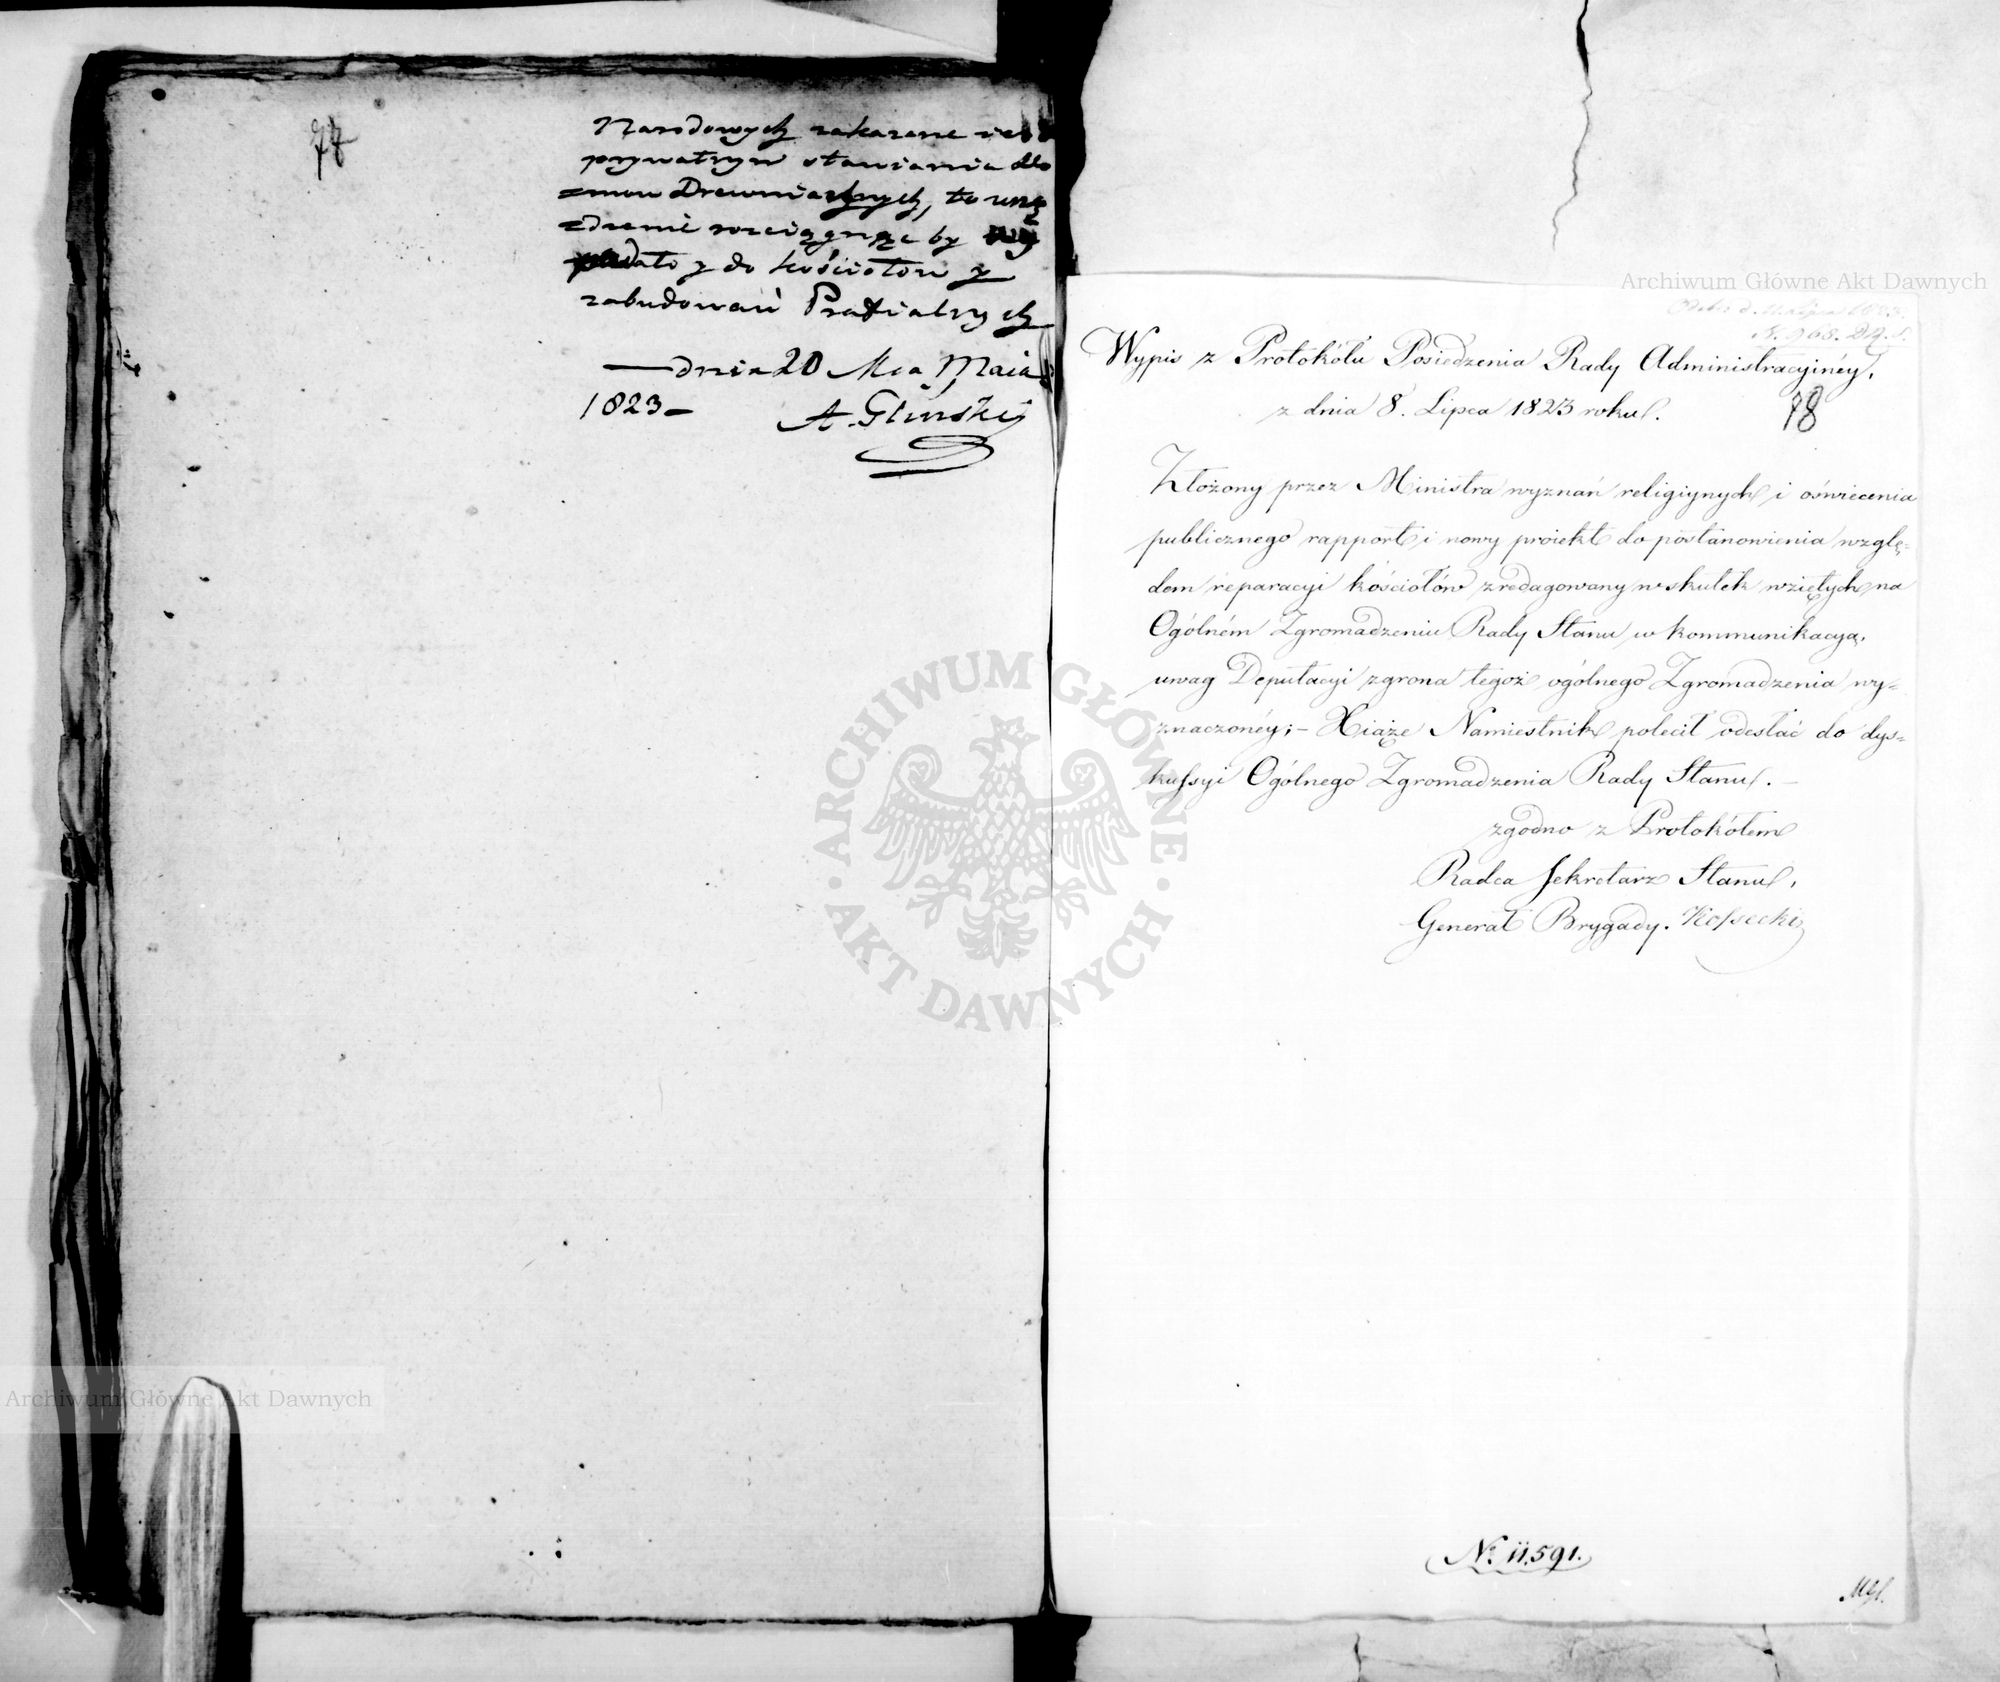 77
Narodowych zakazane iest
prywatnym stawiania Do
=mow Drewnianych, to urzą
=dzenie rozciągnąc by wy
padało y do kościołow y
zabudowań Parafialnych
— dnia 20 Mca Maia
1823 —
A. Gliński
Archiwum Główne Akt Dawnych
N. 968. D.G.S.
Wypis z Protokółu Posiedzenia Rady Administracyinéy,
z dnia 8. Lipca 1823 roku.
78
Złożony przez Ministra wyznań religiynych i oświecenia
publicznego rapport i nowy proiekt do postanowienia wzglę=
dem reparacyi kościołów zredagowany w skutek wziętych na
Ogólném Zgromadzeniu Rady Stanu w kommunikacyą,
uwag Deputacyi z grona tegoż ogólnego Zgromadzenia wy=
znaczonéy; – Xiąże Namiestnik polecił odesłać do dys=
kussyi Ogólnego Zgromadzenia Rady Stanu. –
zgodno z Protokółem
Radca Sekretarz Stanu,
Generał Brygady. Kossecki
ARCHIWUM GŁÓWNE
AKT DAWNYCH
Archiwum Główne Akt Dawnych
No 11,591.